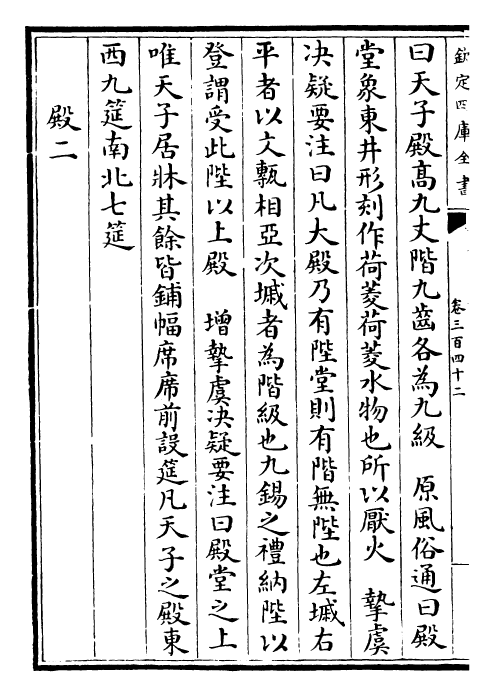 欽定四庫全書
卷三百四十二
曰天子殿髙九丈階九齒各為九級　原風俗通曰殿
堂象東井形刻作荷菱荷菱水物也所以厭火　摯虞
决疑要注曰凡大殿乃有陛堂則有階無陛也左墄右
平者以文甎相亞次墄者為階級也九錫之禮納陛以
登謂受此陛以上殿　増摯虞决疑要注曰殿堂之上
唯天子居牀其餘皆鋪幅席席前設筵凡天子之殿東
西九筵南北七筵
殿二